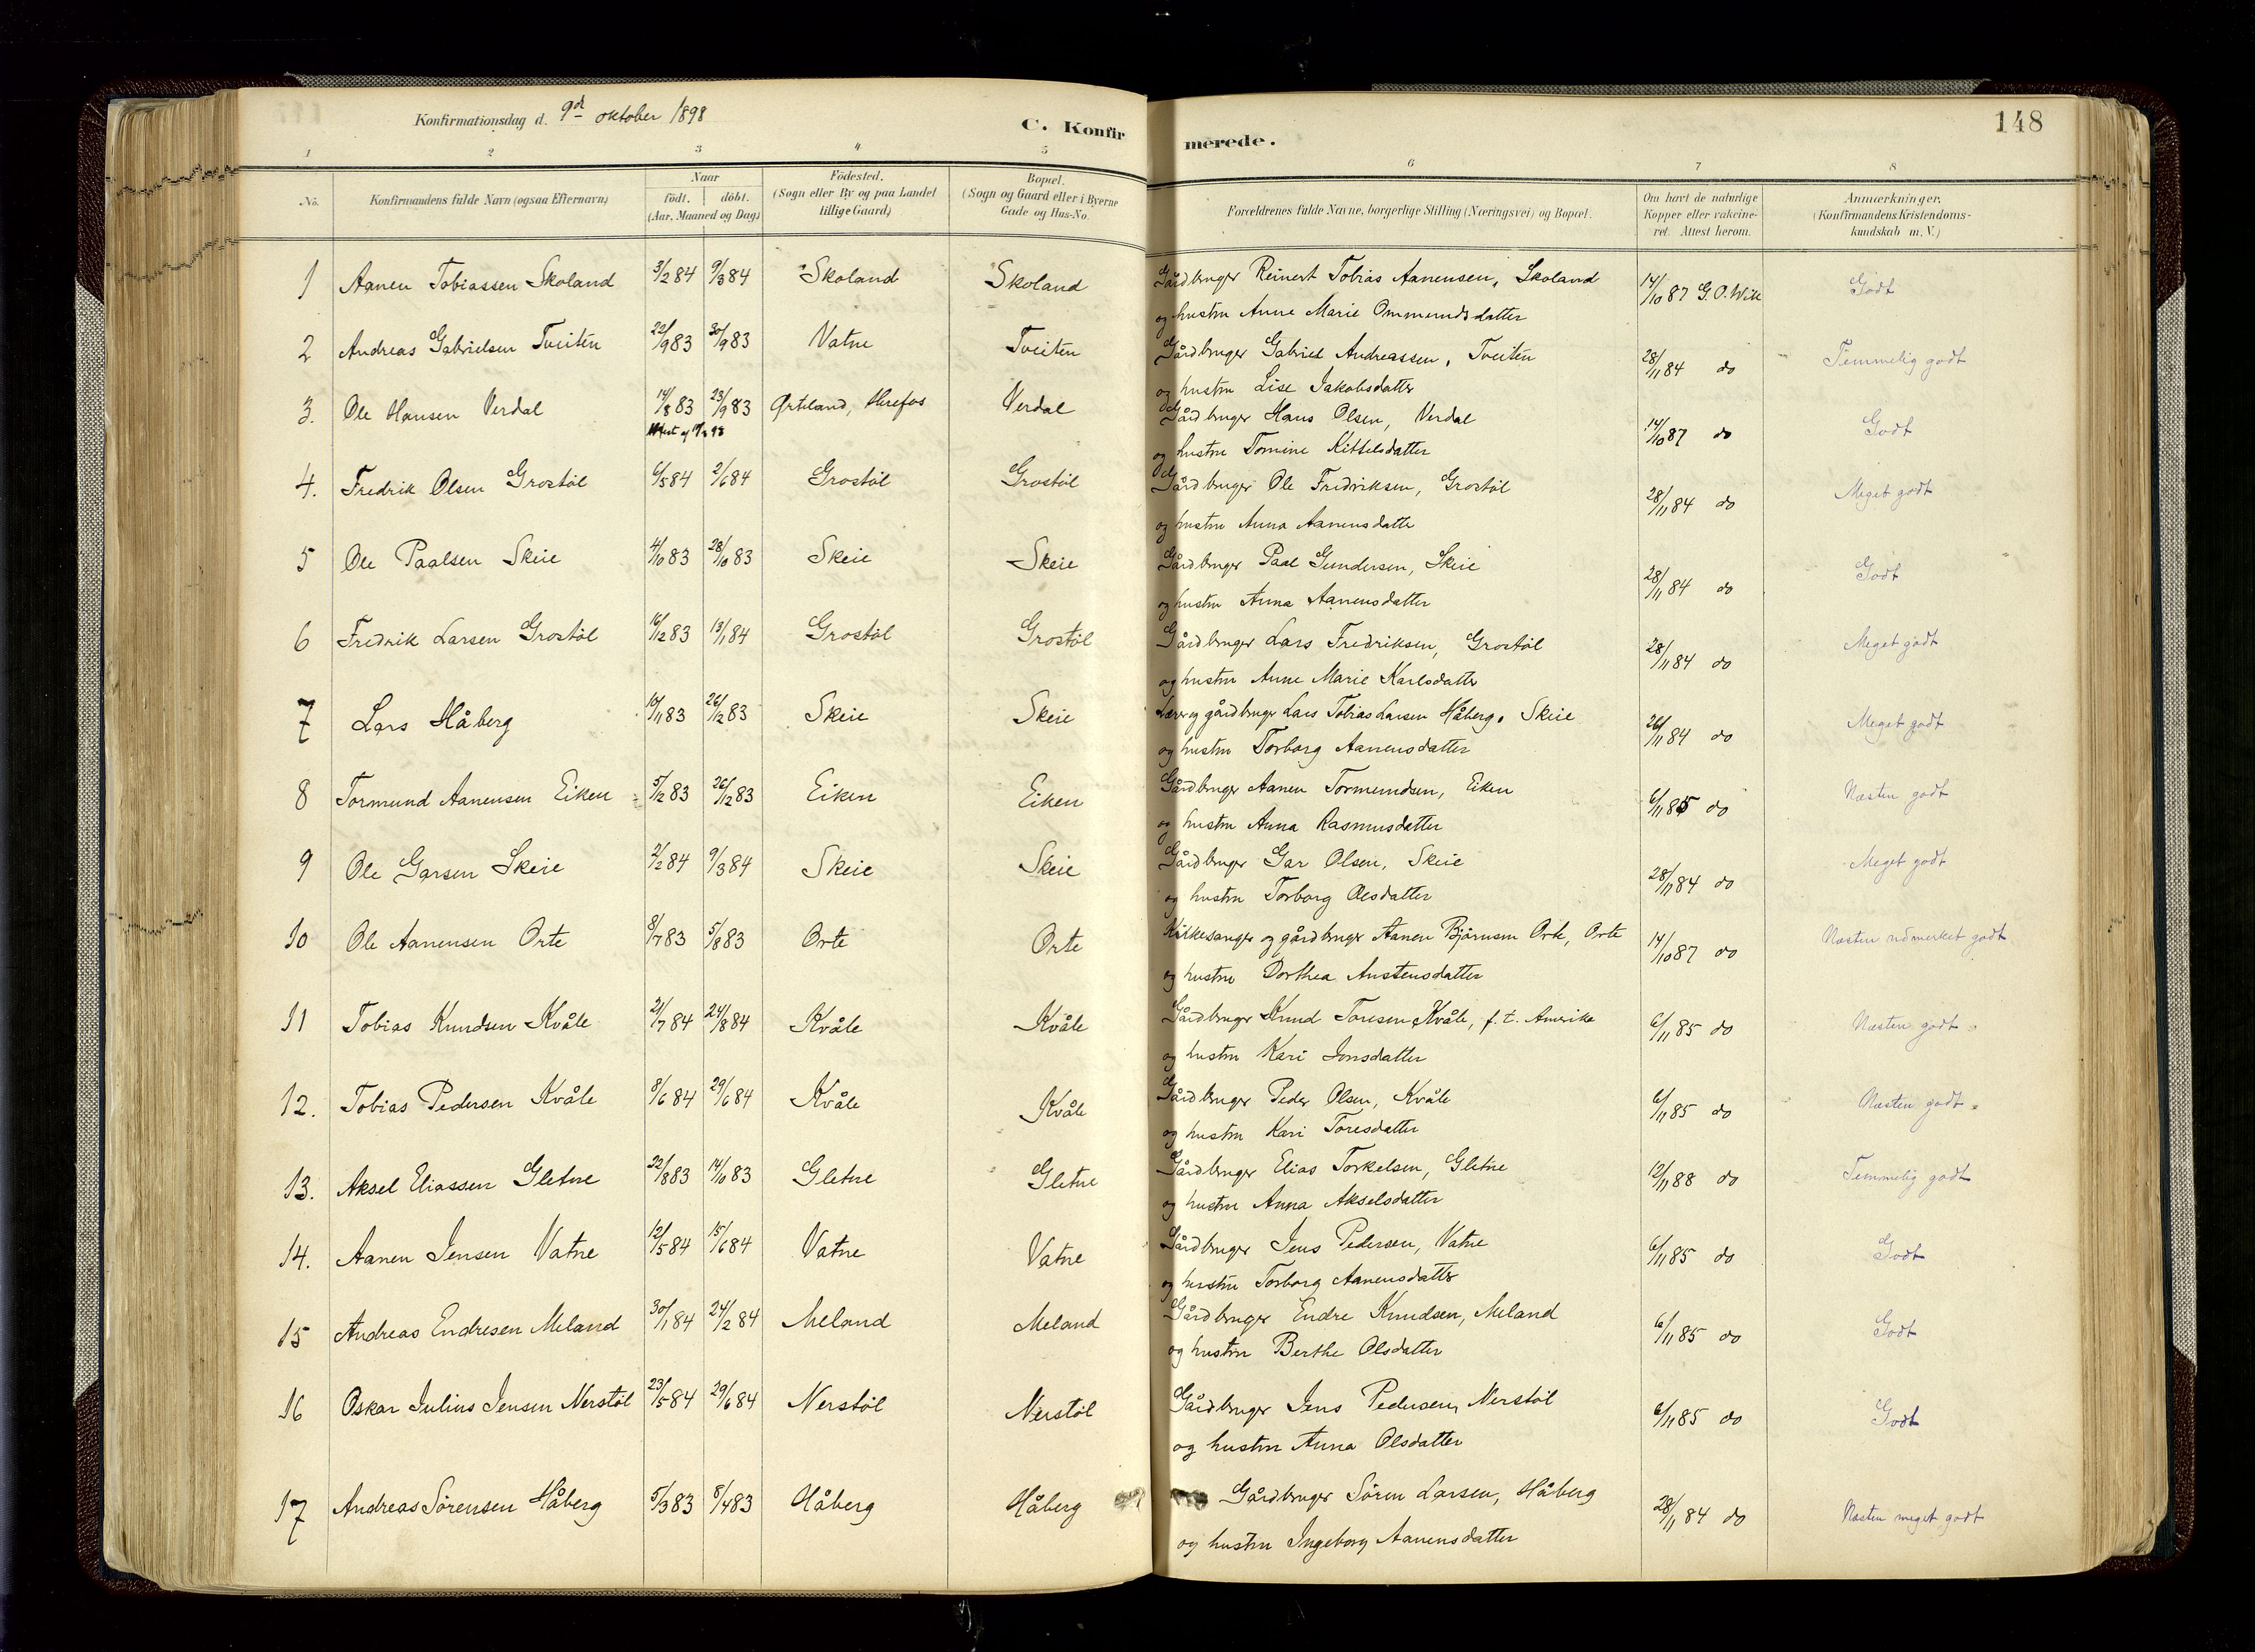 Konfirmationsdag d. 9de oktober 1898
C. Konfirmerede.
148
1 2 3 4 5 6 7 8
No.
Konfirmandens fulde Navn (ogsaa Efternavn)
Naar
födt. döbt.
(Aar, Maaned og Dag)
Födested.
(Sogn eller By og paa Landet
tillige Gaard)
Bopæl.
(Sogn og Gaard eller i Byerne
Gade og Hus-No.
Forældrenes fulde Navne, borgerlige Stilling (Næringsvei) og Bopæl.
Om havt de naturlige
Kopper eller vakcine-
ret. Attest herom.
Anmærkninger.
(Konfirmandens Kristendoms-
kundskab m. V.)
1 Aanen Tobiassen Skoland 3/2 84 9/3 84 Skoland Skoland Gårdbruger Reinert Tobias Aanensen, Skoland 14/10 87 G.O. Will Godt
og hustru Anne Marie Ommundsdatter
2 Andreas Gabrielsen Tveiten 22/9 83 30/9 83 Vatne Tveiten Gårdbruger Gabriel Andreassen, Tveiten 28/11 84 do Temmelig godt
og hustru Lise Jakobsdatter
3. Ole Hansen Verdal 14/8 83 23/9 83 Verdal Gårdbruger Hans Olsen, Verdal 14/10 87 do Godt
og hustru Tomine Kittelsdatter
4. Fredrik Olsen Grostöl 6/5 84 2/6 84 Grostöl Grostöl Gårdbruger Ole Fredriksen, Grostöl 28/11 84 do Meget godt
og hustru Anna Aanensdatter
5 Ole Paalsen Skeie 4/10 83 28/10 83 Skeie Skeie Gårdbruger Paal Gundersen, Skeie 28/11 84 do Godt
og hustru Anna Aanensdatter
6 Fredrik Larsen Grostöl 16/12 83 13/1 84 Grostöl Grostöl Gårdbruger Lars Fredriksen, Grostöl 28/11 84 do Meget godt
og hustru Anne Marie Karlsdatter
7 Lars Håberg 18/11 83 26/12 83 Skeie Skeie Lærer og gårdbruger Lars Tobias Larsen Håberg, Skeie 26/11 84 do Meget godt
og hustru Torborg Aanensdatter
8 Tormund Aanensen Eiken 5/12 83 26/12 83 Eiken Eiken Gårdbruger Aanen Tormundsen, Eiken 6/11 85 do Næsten godt
og hustru Anna Rasmusdatter
9 Ole Garsen Skeie 2/2 84 9/3 84 Skeie Skeie Gårdbruger Gar Olsen, Skeie 28/11 84 do Meget godt
og hustru Torborg Olsdatter
10 Ole Aanensen Orte 8/7 83 5/8 83 Orte Orte Kirkesanger og gårdbruger Aanen Björnsen Orte, Orte 14/10 87 do Næsten udmerket godt
og hustru Dorthea Anstensdatter
11 Tobias Knudsen Kvåle 21/7 84 24/8 84 Kvåle Kvåle Gårdbruger Knud Toresen Kvåle, f. t. Amerika 6/11 85 do Næsten godt
og hustru Kari Jonsdatter
12. Tobias Pedersen Kvåle 8/6 84 29/6 84 Kvåle Kvåle Gårdbruger Peder Olsen, Kvåle 6/11 85 do Næsten godt
og hustru Kari Toresdatter
13. Aksel Eliassen Gletne 22/8 83 14/10 83 Gletne Gletne Gårdbruger Elias Torkelsen, Gletne 12/11 88 do Temmelig godt
og hustru Anna Akselsdatter
14. Aanen Jensen Vatne 12/5 84 15/6 84 Vatne Vatne Gårdbruger Jens Pedersen, Vatne 6/11 85 do Godt
og hustru Torborg Aanensdatter
15 Andreas Endresen Meland 30/1 84 24/2 84 Meland Meland Gårdbruger Endre Knudsen, Meland 6/11 85 do Godt
og hustru Berthe Olsdatter
16 Oskar Julius Jensen Nerstöl 23/5 84 29/6 84 Nerstöl Nerstöl Gårdbruger Jens Pedersen, Nerstöl 6/11 85 do Godt
og hustru Anna Olsdatter
17 Andreas Sörensen Håberg 5/3 83 8/4 83 Håberg Håberg Gårdbruger Sören Larsen, Håberg 28/11 84 do Næsten meget godt
og hustru Ingeborg Aanensdatter